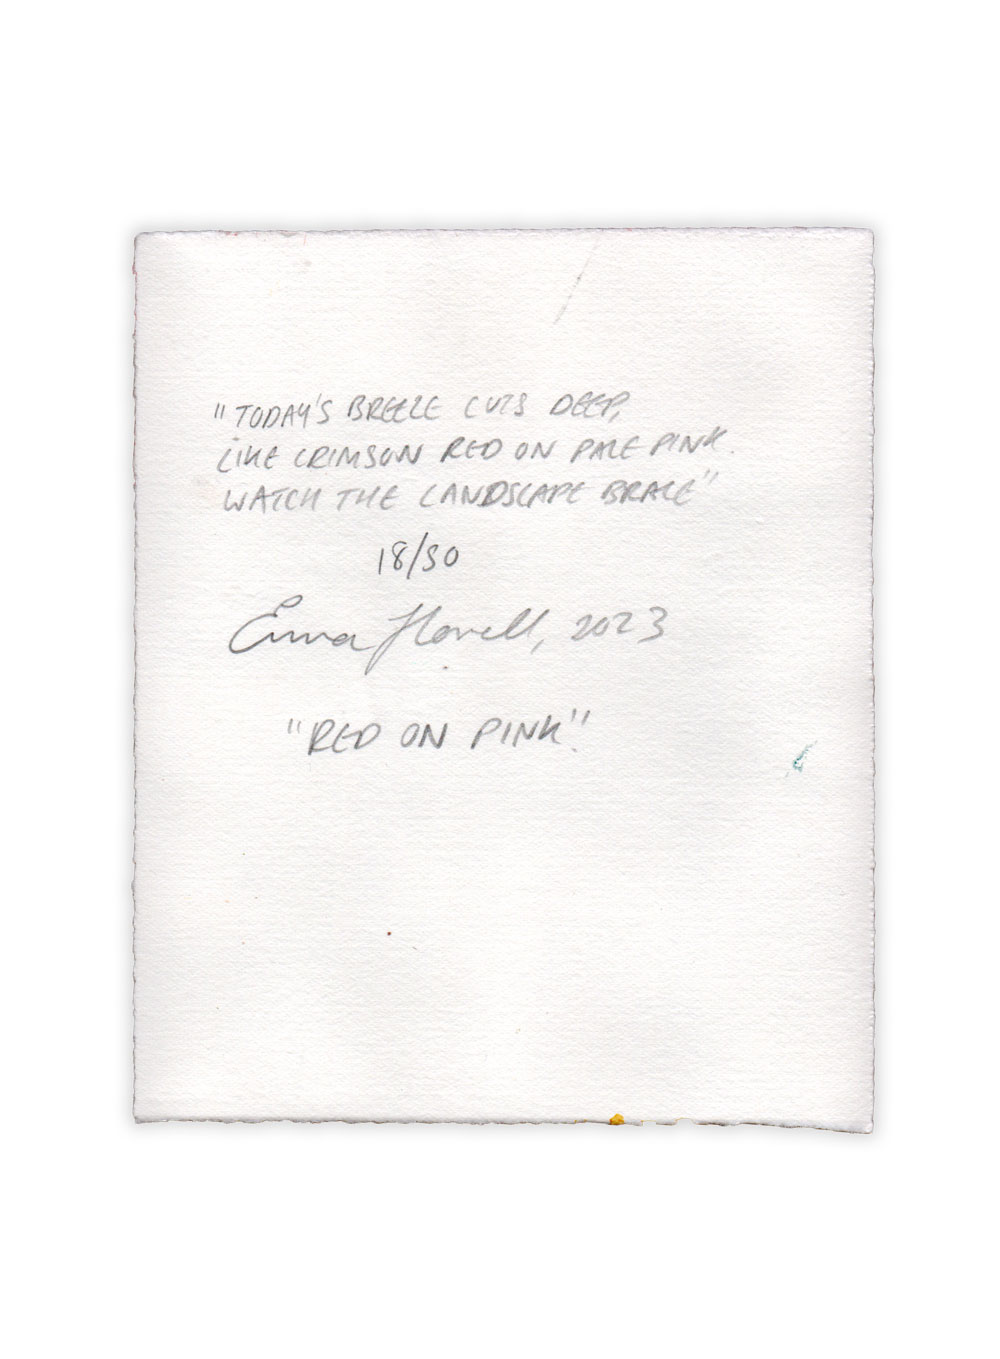 "TODAY'S BREEZE CUTS DEEP,
LIKE CRIMSON RED ON PALE PINK.
WATCH THE LANDSCAPE BRACE"
18/30
Emma Howell, 2023
"RED ON PINK."